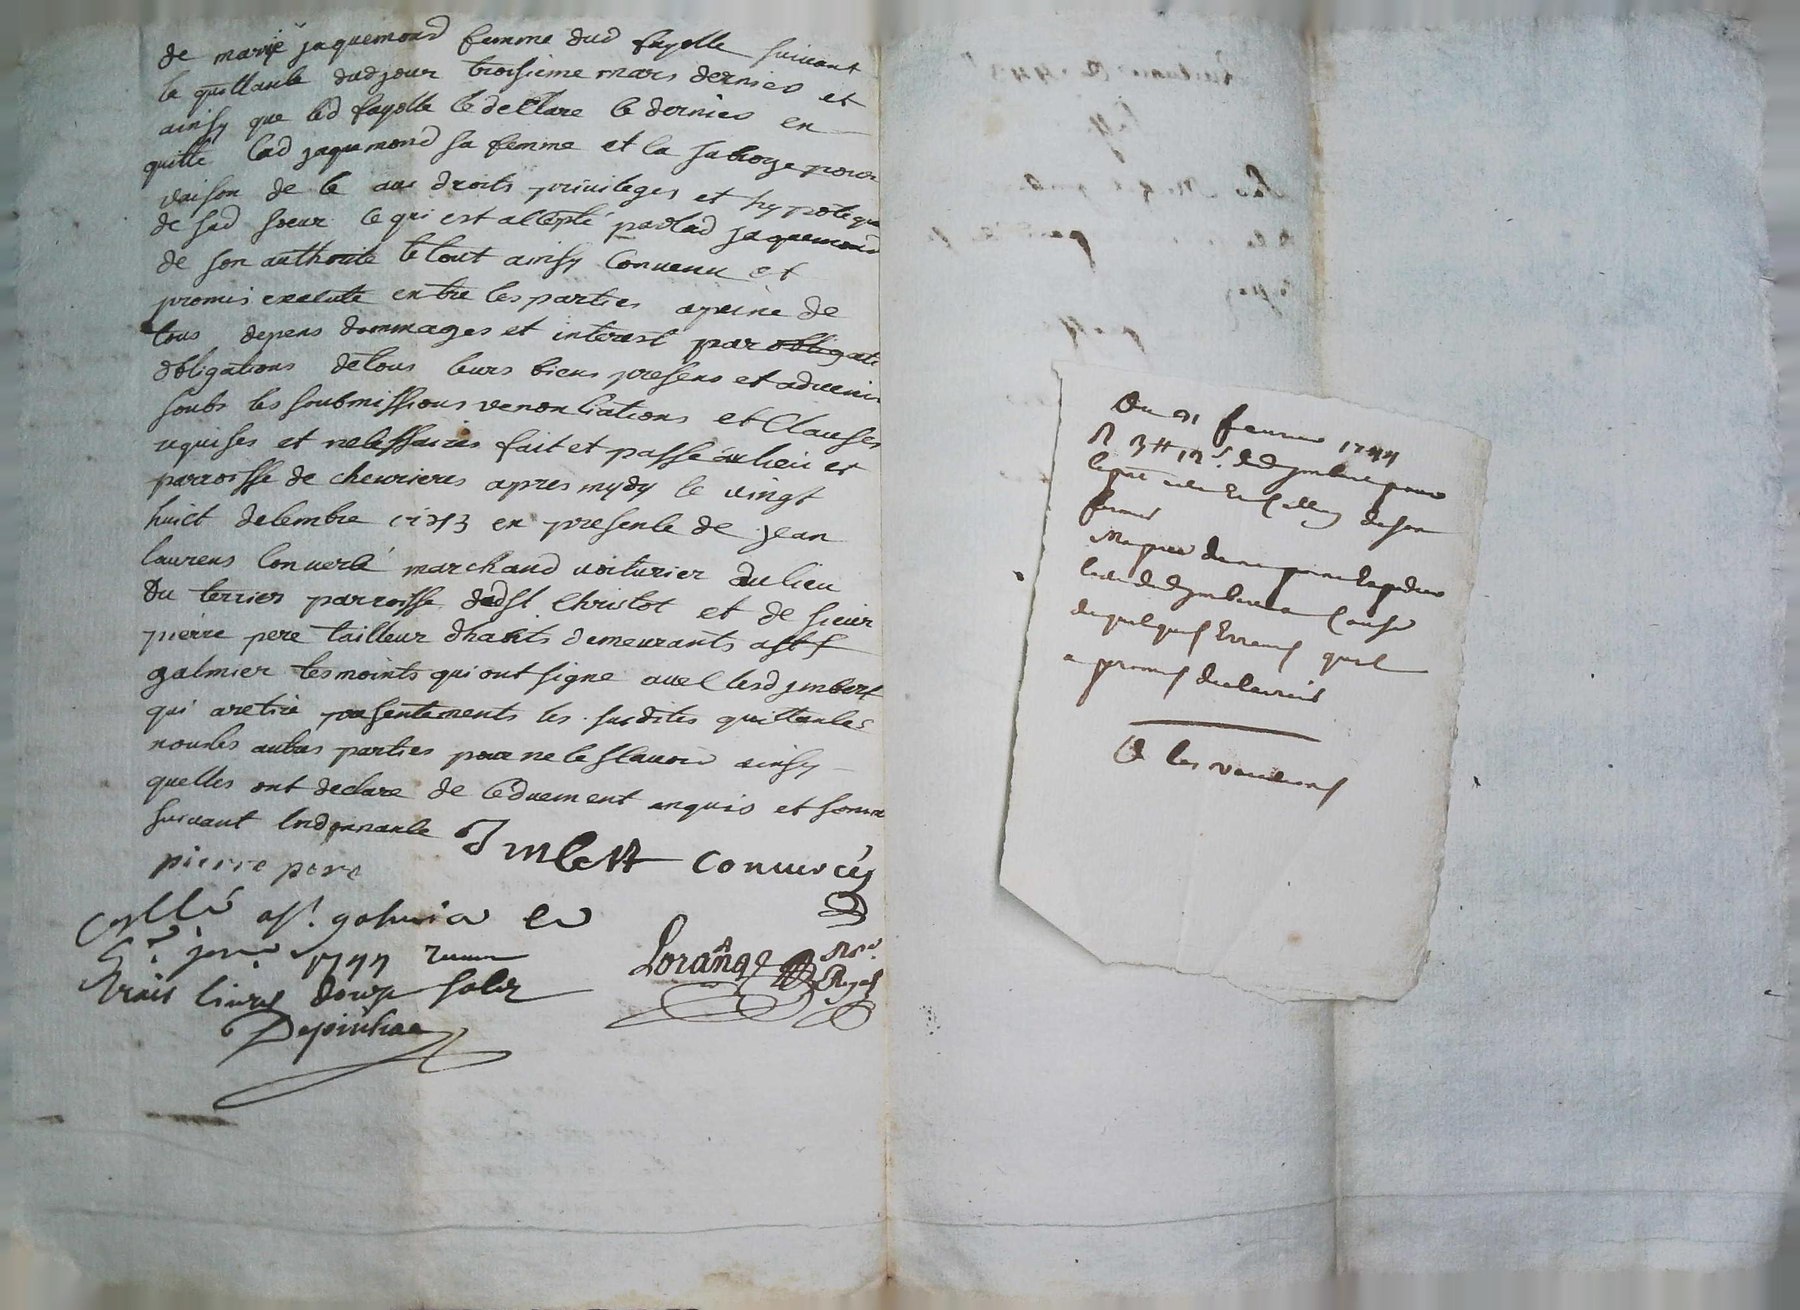 de marie jaquemond femme dud fayolle suivant
la quittance dud jour troisieme mars dernier et
ainsy que led fayolle le declare le dernier en
quitte lad jaquemond sa femme et la subroge pour
raison de ce aux droits privileges et hypoteque
de sad soeur ce qui est accepté par lad jaquemond
de son authorité le tout ainsy convenu et
promis execute entre les parties a peine de
tous depens dommages et interest par obligati
obligations de tous leurs biens presens et advenir
soubs les soubmissions renonciations et clauses
requises et necessaires fait et passé au lieu et
parroisse de chevrieres apres mydy le vingt
huict decembre 1743 en presence de jean
laurens convercé marchand voiturier du lieu
du terrier parroisse dud st Christot et de sieur
pierre pere tailleur dhabits demeurants a st
galmier tesmoints qui ont signé avec lesd jmbert
qui a retiré presentements les susdites quittances
non les autres parties pour ne le scavoir ainsy
quelles ont declare de ce duement enquis et somm
suivant lordonnance
Imbert convercés
pierre pere
Corllé a st. galmier le
janvier 1744 receu
trois livres douze sols
Lorange Nore
Royal
Du 21 fevrier 1744
R 3# 12s. de d jmbert pour
de son
fermes
de jmbert a cause
de quelques Erreurs quil
a promis